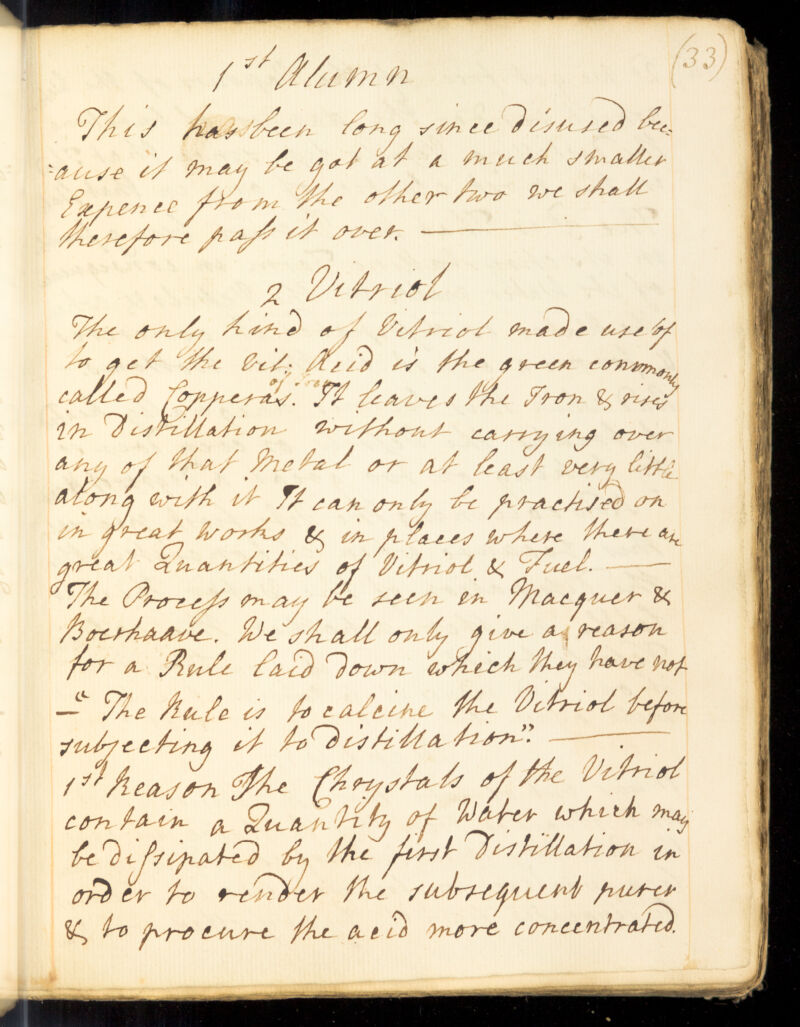 (33)
1st Alumn
This has been long since disused bec=
=ause it may be got at a much smaller
Expence from the other two we shall
therefore pass it over.
2 Vitriol
The only kind of Vitriol made use of
to get the Vit: Acid is the green commonly
called Copperas. It leaves the Iron & rises
in Distillation without carrying over
any of that Metal or at least very little
along with it It can only be practised on
in great works & in places where there are
great Quantities of Vitriol & Fuel.
The Process may be seen in Macquer &
Boerhaave. We shall only give a reason
for a Rule laid down which they have not
— "The Rule is to calcine the Vitriol before
subjecting it to distillation".
1st Reason The Chrystals of the Vitriol
contain a Quantity of Water which may
be dissipated by the first Distillation in
order to render the subsequent purer
& to procure the acid more concentrated.